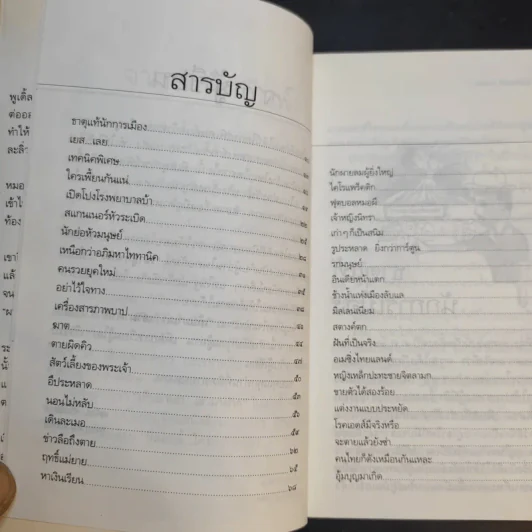 พูเติ้ล
ต่ออ
ทำให้
หมอ
เข้าไ
ท้อง
แล้
จน
สารบัญ
ธาตุแท้นักการเมือง
เยส...เลย
เทคนิคพิเศษ
ใครเพี้ยนกันแน่
เปิดโปงโรงพยาบาลบ้า
สแกนเนอร์หัวระเบิด
นักย่อหัวมนุษย์ ๒๕
เหนือกว่าอภิมหาไททานิค ๒๘
คนรวยยุคใหม่ ๓๑
อย่าไว้ใจทาง ๓๕
เครื่องสารภาพบาป ๓๘
ฆาต ๔๑
ตายผิดคิว ๔๔
สัตว์เลี้ยงของพระเจ้า ๔๗
อีประหลาด ๕๐
นอนไม่หลับ ๕๓
เดินละเมอ ๕๖
ข่าวลือถึงตาย ๕๙
ฤทธิ์แม่ยาย ๖๒
หาเงินเรียน ๖๕
๖๘
นักผายลมผู้ยิ่งใหญ่
ไดโรแพร็คติก
ฟุตบอลหมอผี
เจ้าหญิงนิทรา
เก่าๆ ก็เป็นสนิม
รูประหลาด ยิ่งกว่าการ์ตูน
รกมนุษย์
อินเดียหน้าแตก
ช้างน้ำแห่งเมืองลับแล
มิลเลนเนียม
สตางค์ตก
ฝันที่เป็นจริง
อเมซิ่งไทยแลนด์
หญิงเหล็กปะทะชายจิตลามก
ขายตัวได้สองร้อย
แต่งงานแบบประหยัด
โรคเอดส์มีจริงหรือ
จะตายแล้วยังซ่า
คนไทยก็ดังเหมือนกันแหละ
อุ้มบุญมาเกิด